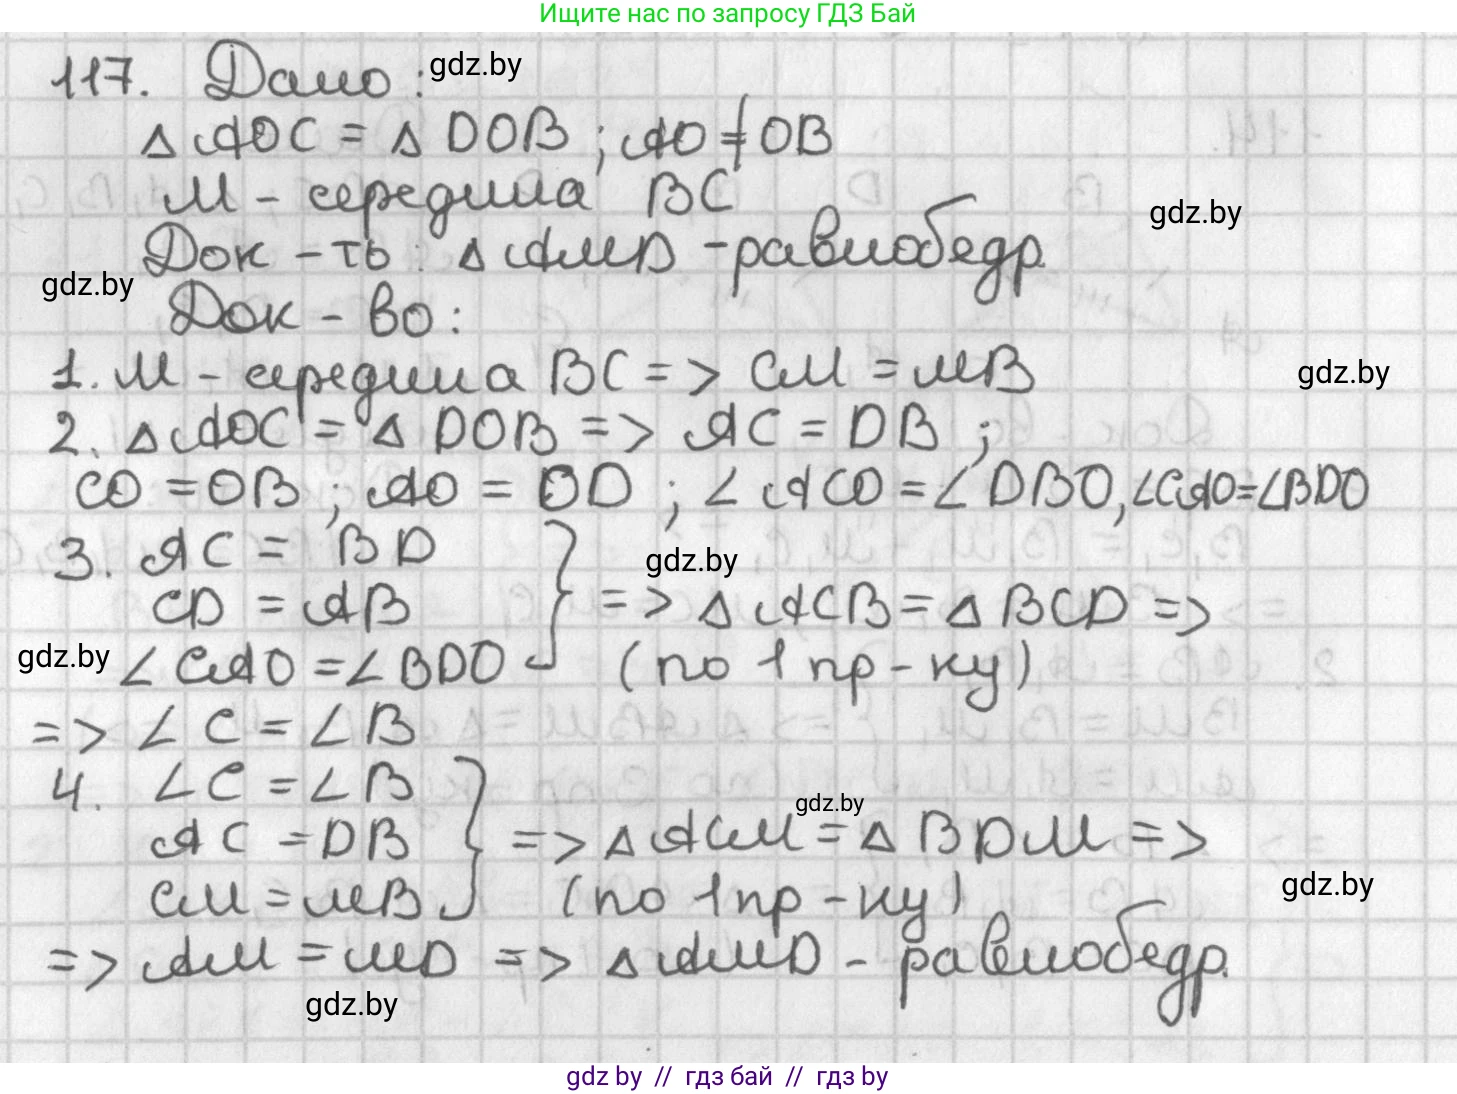 Ищите нас по запросу ГДЗ Бай
117. Дано: gdz.by
△ AOC = △ DOB; AO ≠ OB
M - середина BC
gdz.by
Док-ть: △ AMD - равнобедр.
gdz.by
Док-во:
1. M - середина BC => CM = MB
gdz.by
2. △ AOC = △ DOB => AC = DB;
CO = OB; AO = OD; ∠ ACO = ∠ DBO, ∠CAO = ∠BDO
3. AC = BD
gdz.by
CD = AB } => △ ACB = △ BCD =>
gdz.by
∠ CAO = ∠ BDO (по 1 пр-ку)
=> ∠ C = ∠ B
4. ∠ C = ∠ B
gdz.by
AC = DB } => △ ACM = △ BDM =>
gdz.by
CM = MB (по 1 пр-ку)
=> AM = MD => △ AMD - равнобедр.
gdz.by
gdz by // гдз бай // гдз by